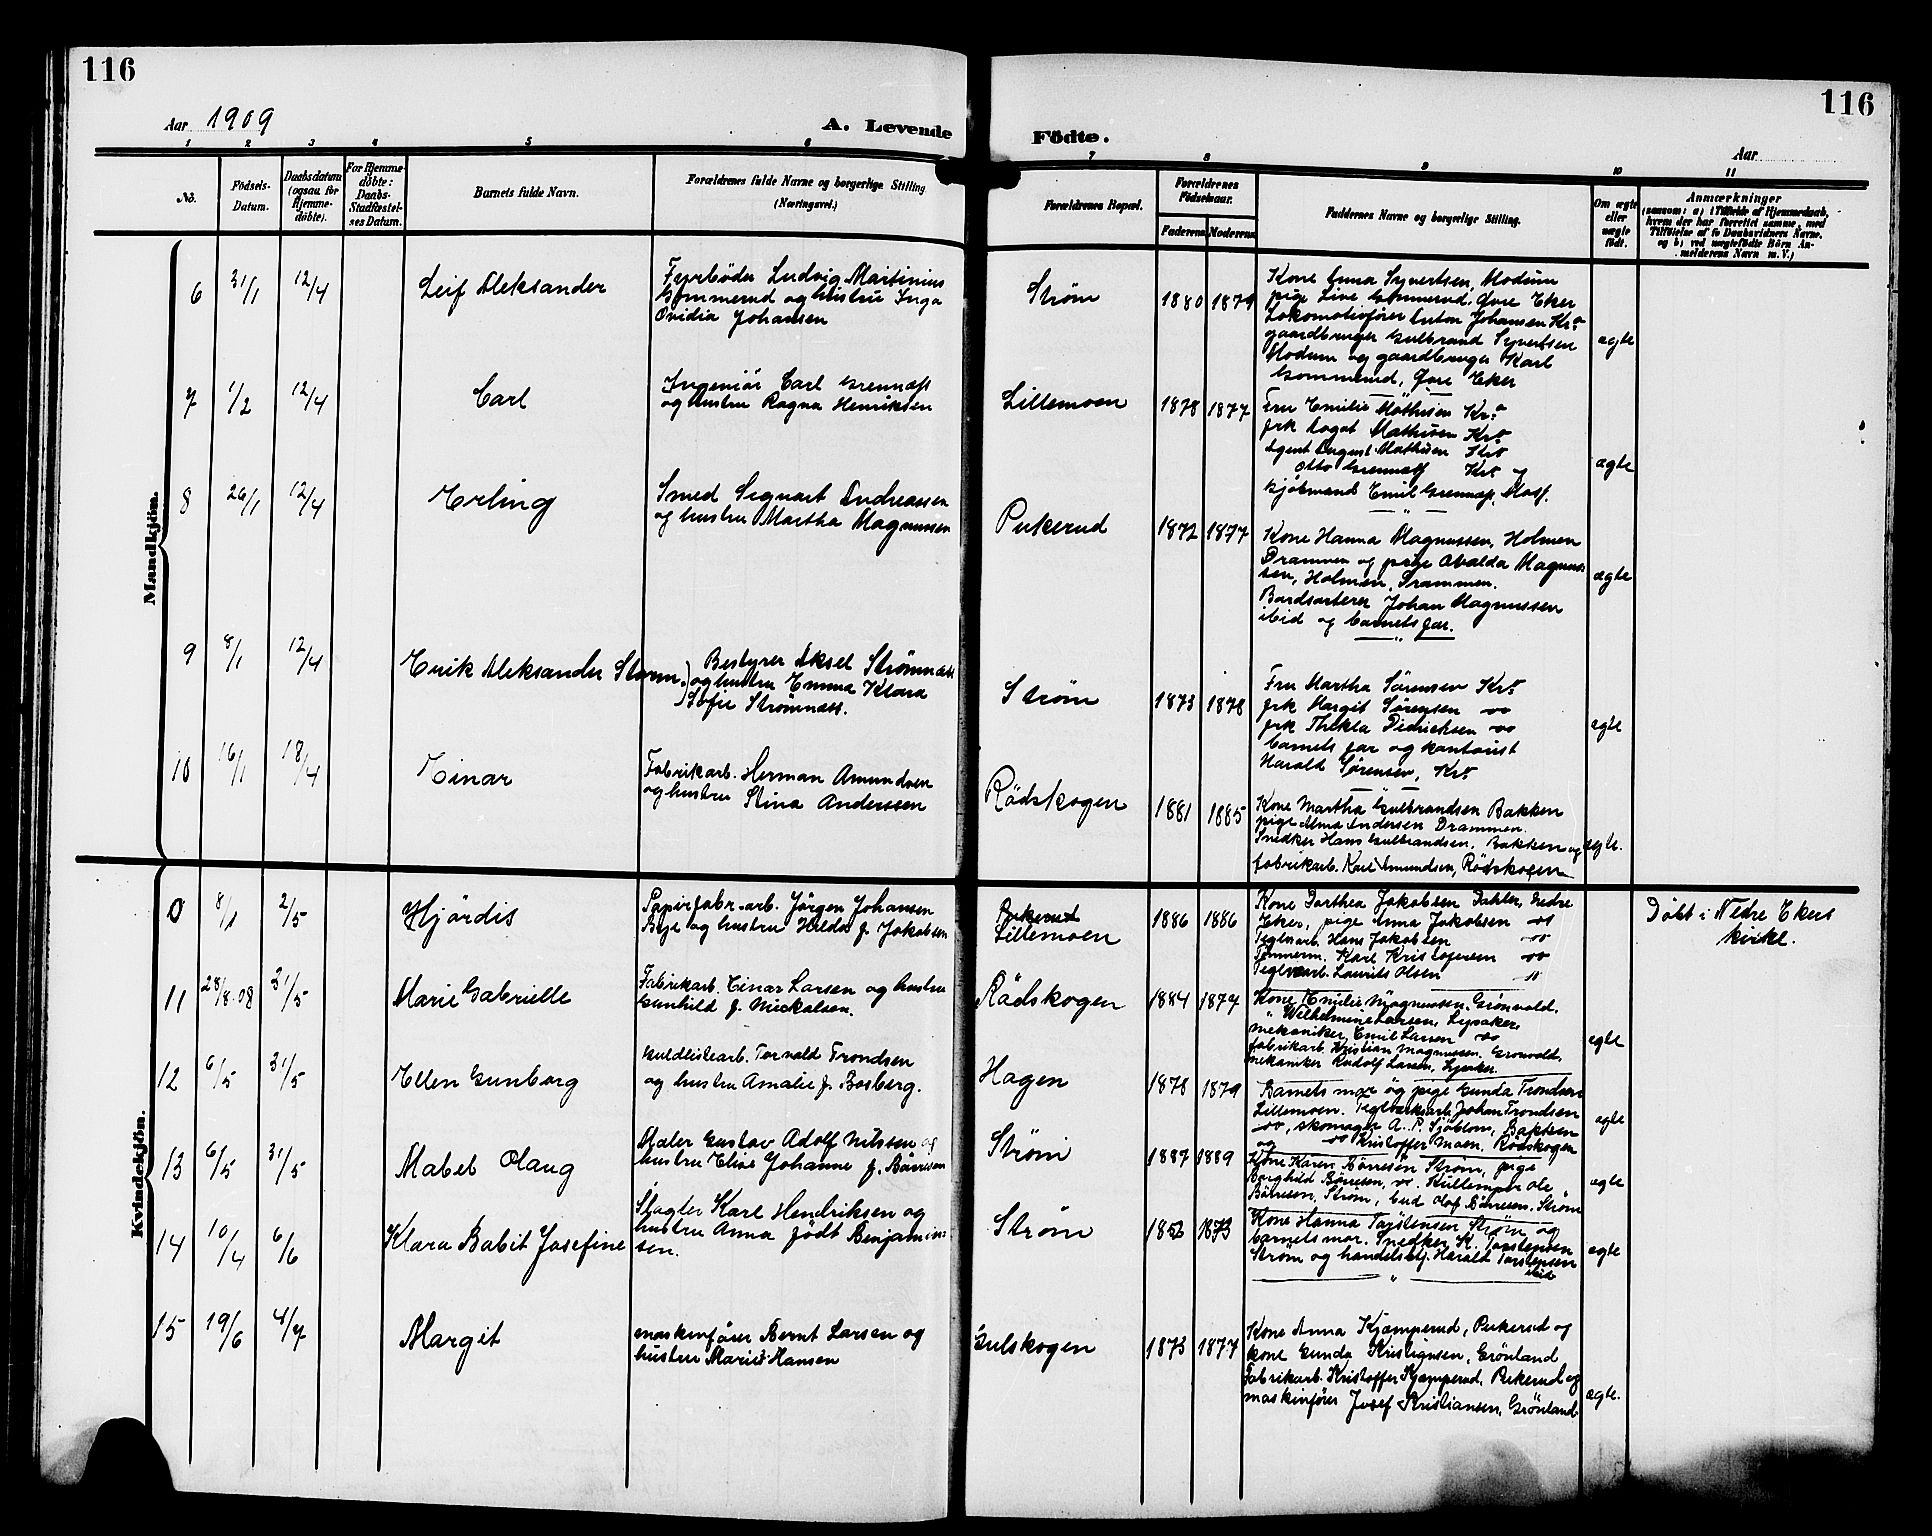 116
116
Aar 1909
A. Levende
Födte.
Aar
1 2 3 4 5 6 7 8 9 10 11
No.
Födsels-
Datum.
Daabsdatum
(ogsaa for
Hjemme-
döbte).
For Hjemme-
döbte:
Daabs-
Stadfæstel-
ses Datum.
Barnets fulde Navn.
Forældrenes fulde Navne og borgerlige Stilling
(Næringsvei.)
Forældrenes Bopæl.
Forældrenes
Födselsaar.
Faderens
Moderens
Faddernes Navne og borgerlige Stilling.
Om ægte
eller
uægte
födt.
Anmærkninger
(saasom: a) i Tilfælde af Hjemmedaab,
hvem der har forrettet samme, med
Tilföielse af to Daabsvidners Navne,
og b) ved uægtefödte Börn An-
melderens Navn m. V.)
Mandkjön.
6 31/1 12/4 Leif Aleksander
Fyrbøder Ludvig Martinius
Gommerud og hustru Inga
Ovidia Johansen
Strøm 1880 1879
Kone Anna Syvertsen, Modum
pige Line Gommerud, Øvre Eker
Lokomotivfører Anton Johansen Kra
gaardbruger Gulbrand Syvertsen
Modum og gaardbruger Karl
Gommerud, Øvre Eker
ægte
7 1/2 12/4 Carl
Ingeniör Carl Grennæss
og hustru Ragna Henriksen
Lillemoen 1878 1877
Fru Emilie Mathisen Kra
frk Dagat Mathisen Kra
Agent August Mathisen Kra
Otto Grennæss Kra
Kjøbmand Emil Grennæss, Moss.
ægte
8 26/1 12/4 Erling
Smed Sigvart Andreassen
og hustru Martha Magnussen
Pukerud 1872 1877
Kone Hanna Magnussen, Holmen
Drammen og pige Valda Magnus-
sen, Holmen, Drammen.
Bordsorterer Johan Magnussen
ibid og barnets far.
ægte
9 8/1 12/4 Erik Aleksander Storm.
Bestyrer Aksel Strömnæss
og hustru Emma Klara
Sofie Strömnæss.
Strøm 1873 1878
Fru Martha Sørensen Kra
frk Margit Sørensen "
frk Thekla Didrichsen "
barnets far og kontorist
Harald Sørensen, Kra
ægte
10 16/1 18/4 Einar
Fabrikarb. Herman Amundsen
og hustru Stina Anderssen
Rödskogen 1881 1885
Kone Martha Gulbrandsen Bakken
pige Alma Andersen Drammen.
Snedker Hans Gulbrandsen, Bakken og
fabrikarb. Karl Amundsen, Rödskogen
ægte.
Kvindekjön.
0 8/1 2/5 Hjördis
Papirfabr.arb. Jörgen Johansen
Bye og hustru Hilda f. Jakobsen
Pukerud
Lillemoen 1886 1886
Kone Dorthea Jakobsen Dahler, Nedre
Eker, pige Anna Jakobsen "
Teglv.arb. Hans Jakobsen "
Tömmerm. Karl Kristofersen "
Teglv.arb. Laurits Olsen "
Döbt i Nedre Ekers
kirke.
11 28/8.08 31/5 Marie Gabrielle
Fabrikarb. Einar Larsen og hustru
Gunhild f. Mickalsen.
Rödskogen 1884 1874
Kone Emilie Magnussen, Grönvold.
" Wilhelmine Larsen, Lysaker,
mekaniker Emil Larsen "
fabrikarb. Kristian Magnussen. Grönvold.
mekaniker Rudolf Larsen, Lysaker.
ægte
12 6/5 31/5 Ellen Gunborg
Guldlistearb. Torvald Trondsen
og hustru Amalie f. Bosberg.
Hagen 1878 1879
Barnets mor og pige Gunda Trondsen
Lillemoen. Teglverksarb. Johan Trondsen
", skomager A. P. Sjöblom, Bakken
og " Kristoffer Moen, Rödskogen
ægte
13 6/5 31/5 Mabel Olaug
Maler Gustav Adolf Nilssen og
hustru Elise Johanne f. Börresen
Ström 1887 1889
Kone Karen Börresen Strøm, pige
Borghild Börresen, ". Kullemper Ole
Börresen, Strøm, bud Olof Börresen, Strøm
ægte
14 10/4 6/6 Klara Babit Josefine
Slagter Karl Hendriksen og
hustru Anna födt Benjamin-
sen.
Ström 1852 1873
Kone Hanna Torstensen Strøm og
barnets mor. Snedker K. Torstensen
Strøm og handelsbtj. Harald Torstensen
ibid
ægte
15 19/6 4/7 Margit
maskinfører Bernt Larsen og
hustru Marie Hansen
Gulskogen 1873 1877
Kone Anna Kjæmperud, Pukerud og
kone Gunda Kristiansen, Grönland
Fabrikarb. Kristoffer Kjæmperud, Pukerud og
maskinfører Josef Kristiansen, Grönland
ægte.